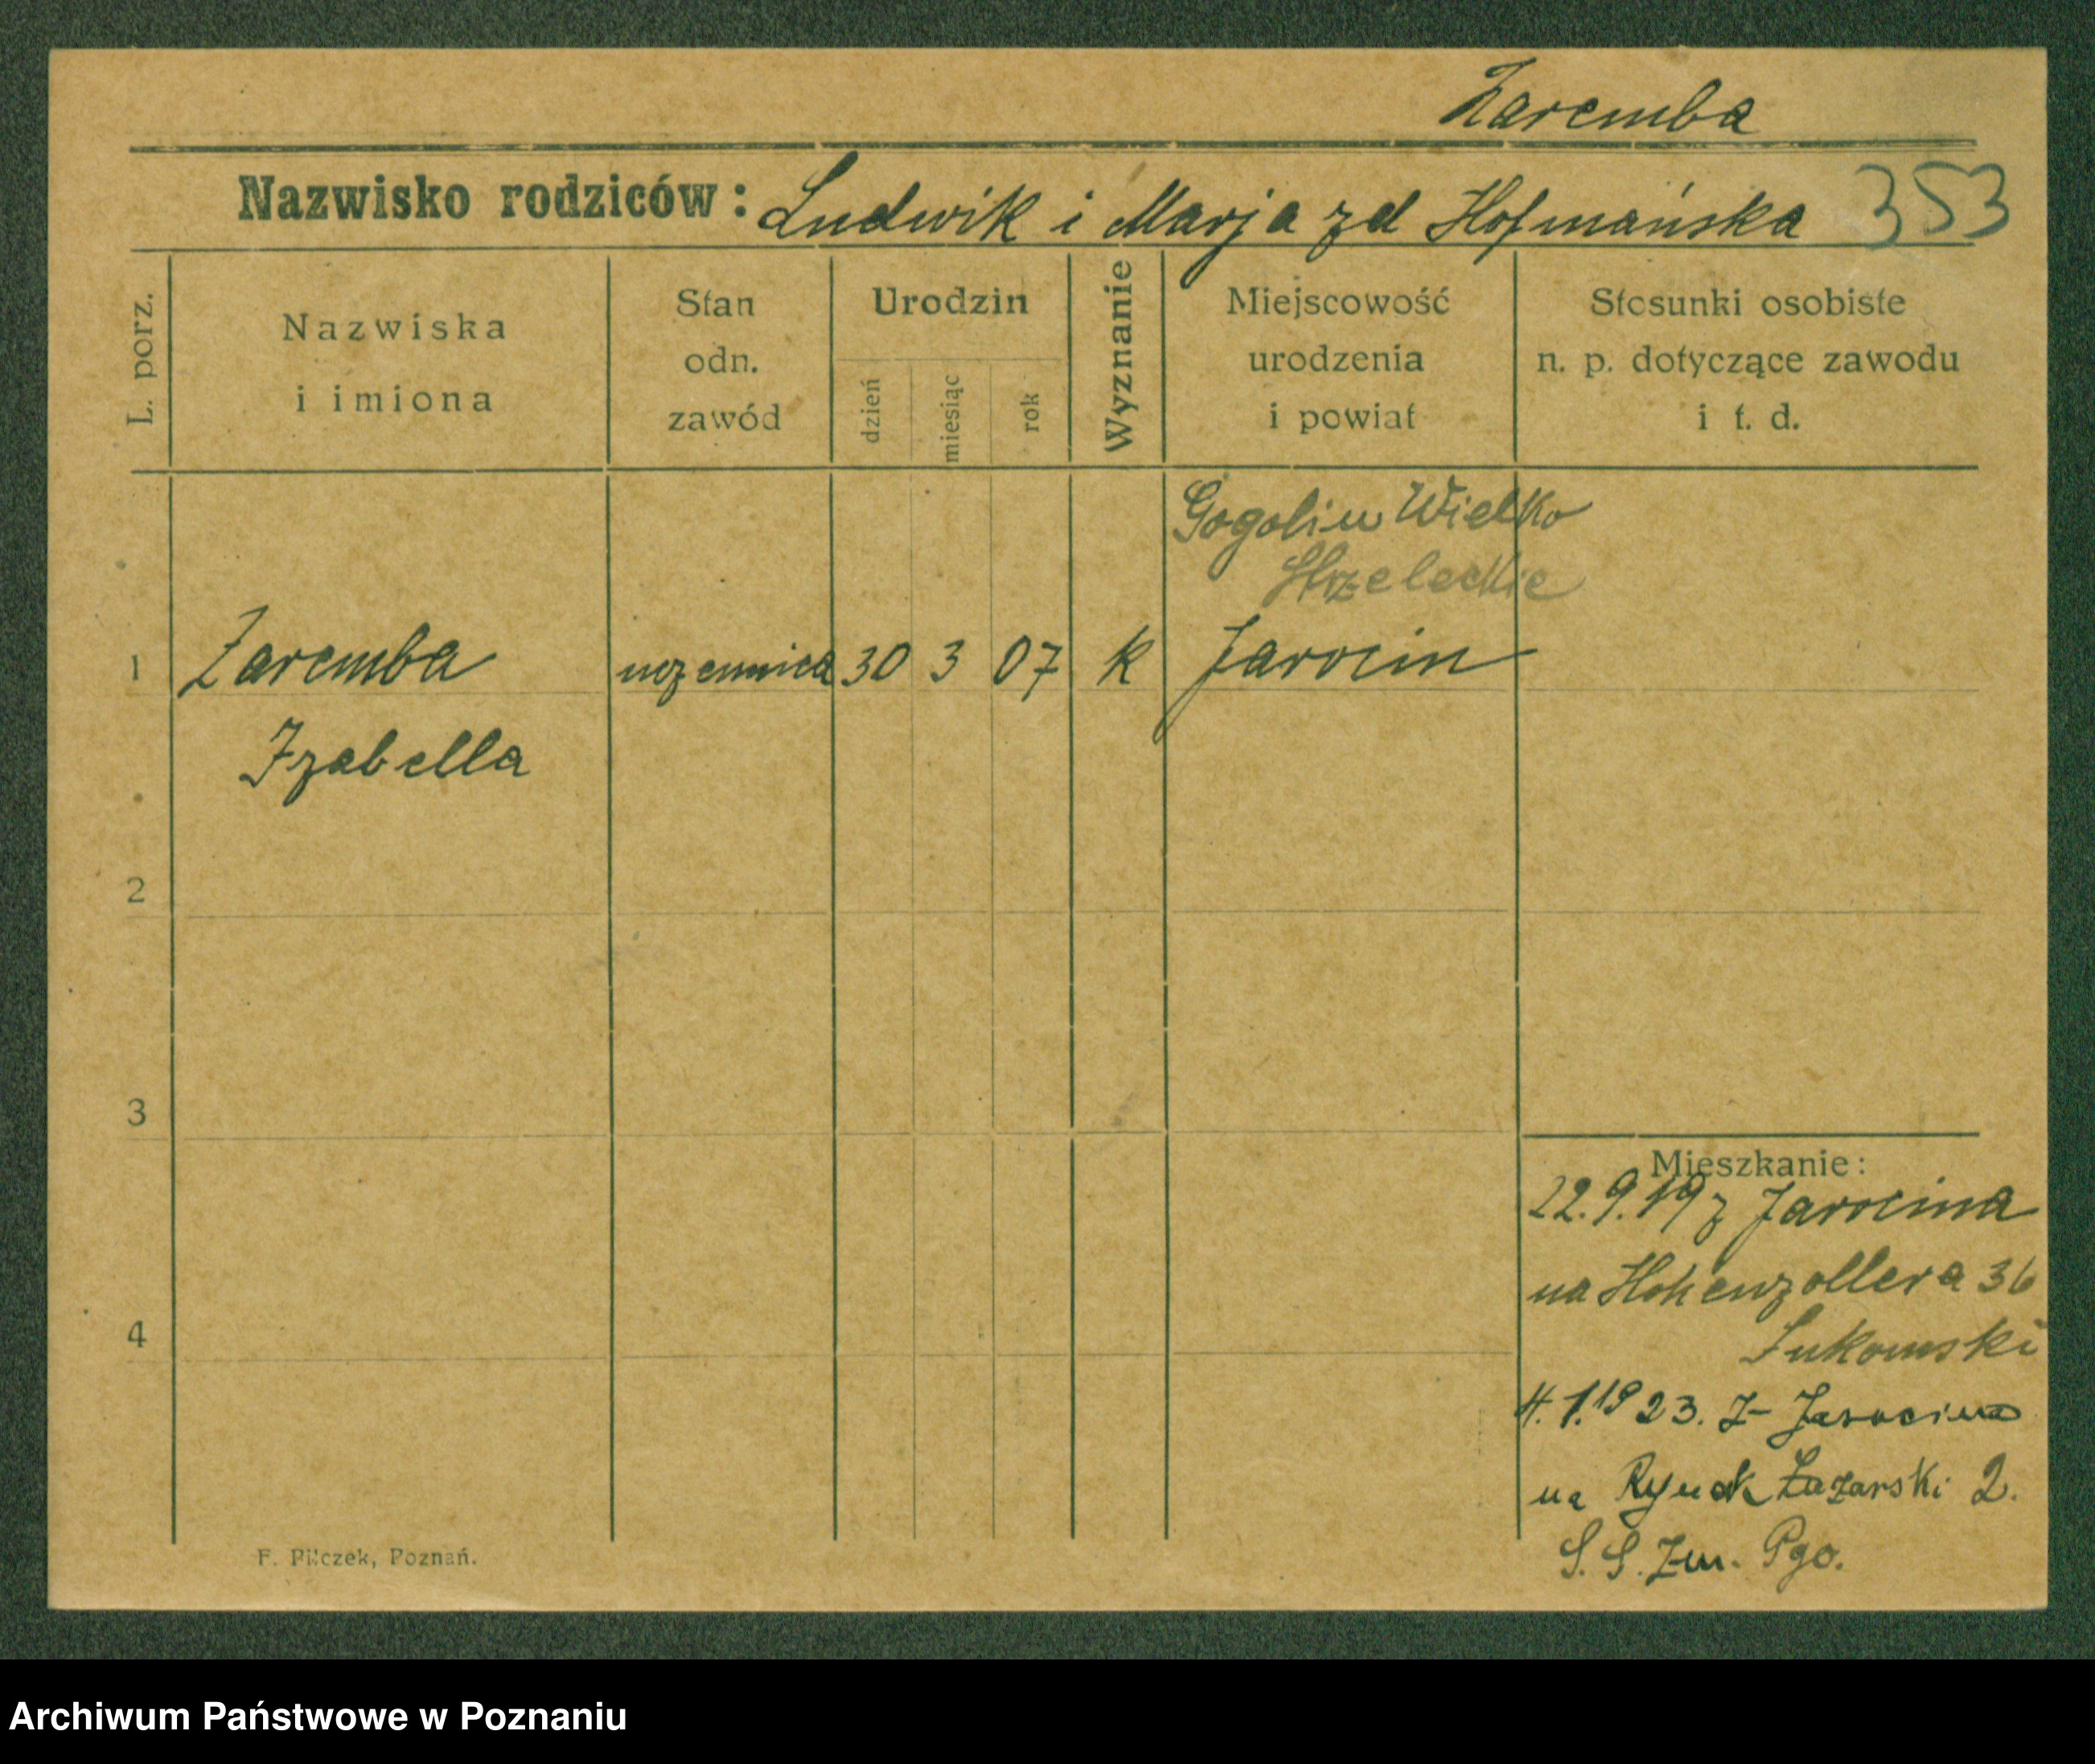 Zaremba
Nazwisko rodziców: Ludwik i Marja zd Hofmańska 353
L. porz.
Nazwiska
i imiona
Stan
odn.
zawód
Urodzin
dzień
miesiąc
rok
Wyznanie
Miejscowość
urodzenia
i powiat
Stosunki osobiste
n. p. dotyczące zawodu
i t. d.
Gogolin Wielko
Strzeleckie
1 Zaremba uczennica 30 3 07 k Jarocin
Izabella
2
3
4
Mieszkanie:
22.9.19 z Jarocina
na Hohenzollera 36
Łukomski
4.1.1923. z Jarocina
na Rynek Łazarski 2.
S. S. Zm. Pgo.
F. Pilczek, Poznań.
Archiwum Państwowe w Poznaniu